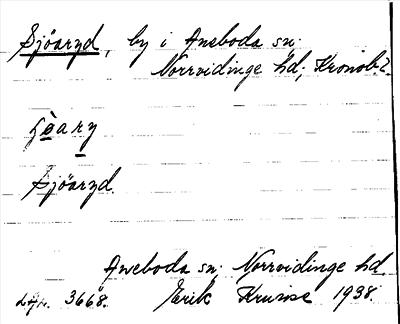 Sjöaryd, by i Aneboda sn;
Norrvidinge hd; Kronob. l.
Sjöaryd.
Aneboda sn; Norrvidinge hd
3668. Erik Kruuse 1938.